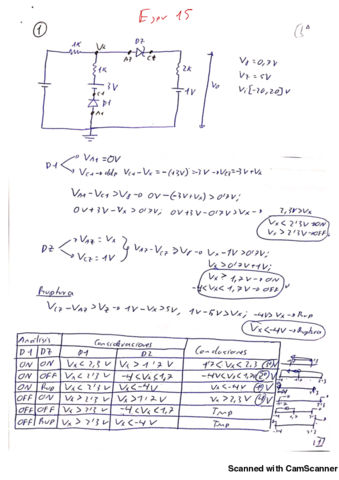 Ejer 15
1
1K
Vx
DZ
AZ
CZ
1K
2K
3V
1V
D1
A1
V0
Vγ = 0,7V
Vz = 5V
Vi [-20,20] V
D1
VA1 = 0V
VC1 → VC1 - Vx = -(+3V) = -3V → VC1 = -3V + Vx
VA1 - VC1 > Vγ → 0V - (-3V + Vx) > 0'7V;
0V + 3V - Vx > 0'7V; 0V + 3V - 0'7V > Vx → 2,3V > Vx
Vx < 2'3V → ON
Vx > 2'3V → OFF
DZ
VAZ = Vx
VCZ = 1V
VAZ - VCZ > Vγ → Vx - 1V > 0'7V;
Vx > 0'7V + 1V;
Vx > 1,7V → ON
-4 < Vx < 1,7V → OFF
Ruptura
VCZ - VAZ > Vz → 1V - Vx > 5V; 1V - 5V > Vx; -4V > Vx → Rup
Vx < -4V → Ruptura
Analisis Consideraciones Conclusiones
D1 DZ D1 DZ
ON ON Vx < 2,3V Vx > 1'7V 1'7 < Vx < 2,3
ON OFF Vx < 2'3V -4 < Vx < 1,7 -4V < Vx < 1,7
ON Rup Vx < 2'3V Vx < -4V Vx < -4V
OFF ON Vx > 2'3V Vx > 1'7V Vx > 2,3V
OFF OFF Vx > 2'3V -4 < Vx < 1,7 Imp
OFF Rup Vx > 2'3V Vx < -4V Imp
Scanned with CamScanner